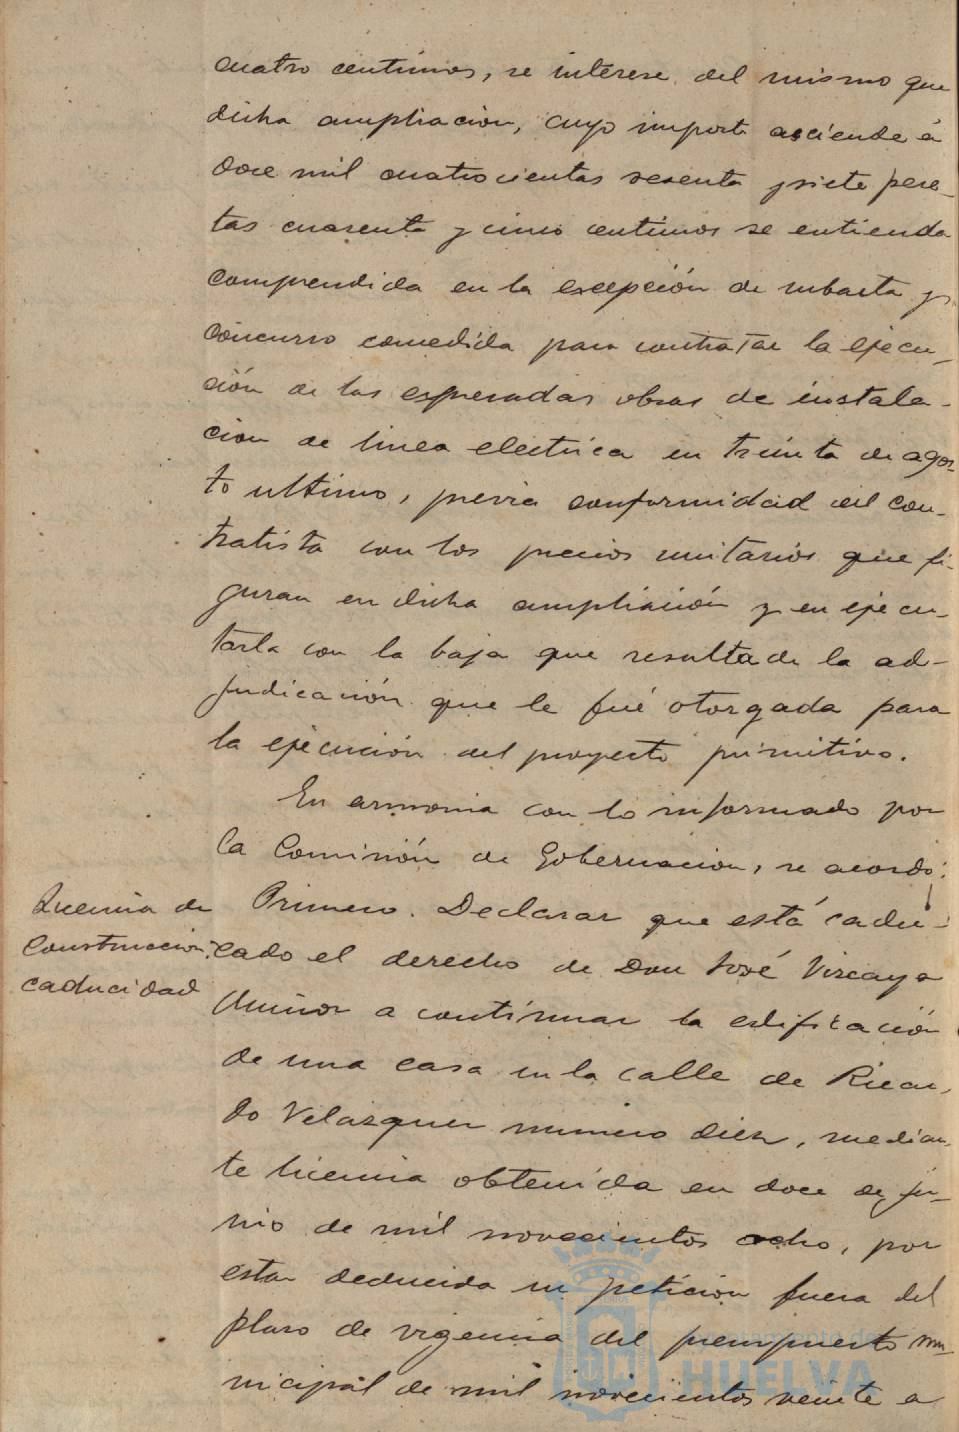 cuatro centimos, se interese del mismo que
dicha ampliacion, cuyo importe asciende á
doce mil cuatrocientas sesenta y siete pese-
tas cuarenta y cinco centimos se entienda
comprendida en la excepción de subasta y
concurso concedida para contratar la ejecu-
ción de las expresadas obras de instala-
cion de linea electrica en treinta de agos-
to ultimo, previa conformidad del con-
tratista con los precios unitarios que fi-
guran en dicha ampliación y en ejecu-
tarla con la baja que resulta de la ad-
judicación que le fué otorgada para
la ejecución del proyecto primitivo.
En armonia con lo informado por
la Comisión de Gobernacion, se acordó:
Licencia de
Construccion:
caducidad
Primero. Declarar que está cadu-
cado el derecho de Don José Vizcaya
Muñoz a continuar la edificación
de una casa en la calle de Ricar-
do Velazquez numero diez, median-
te licencia obtenida en doce de ju-
nio de mil novecientos ocho, por
estar deducida su petición fuera del
plazo de vigencia del presupuesto mu-
nicipal de mil novecientos veinte a
Ayuntamiento de
HUELVA